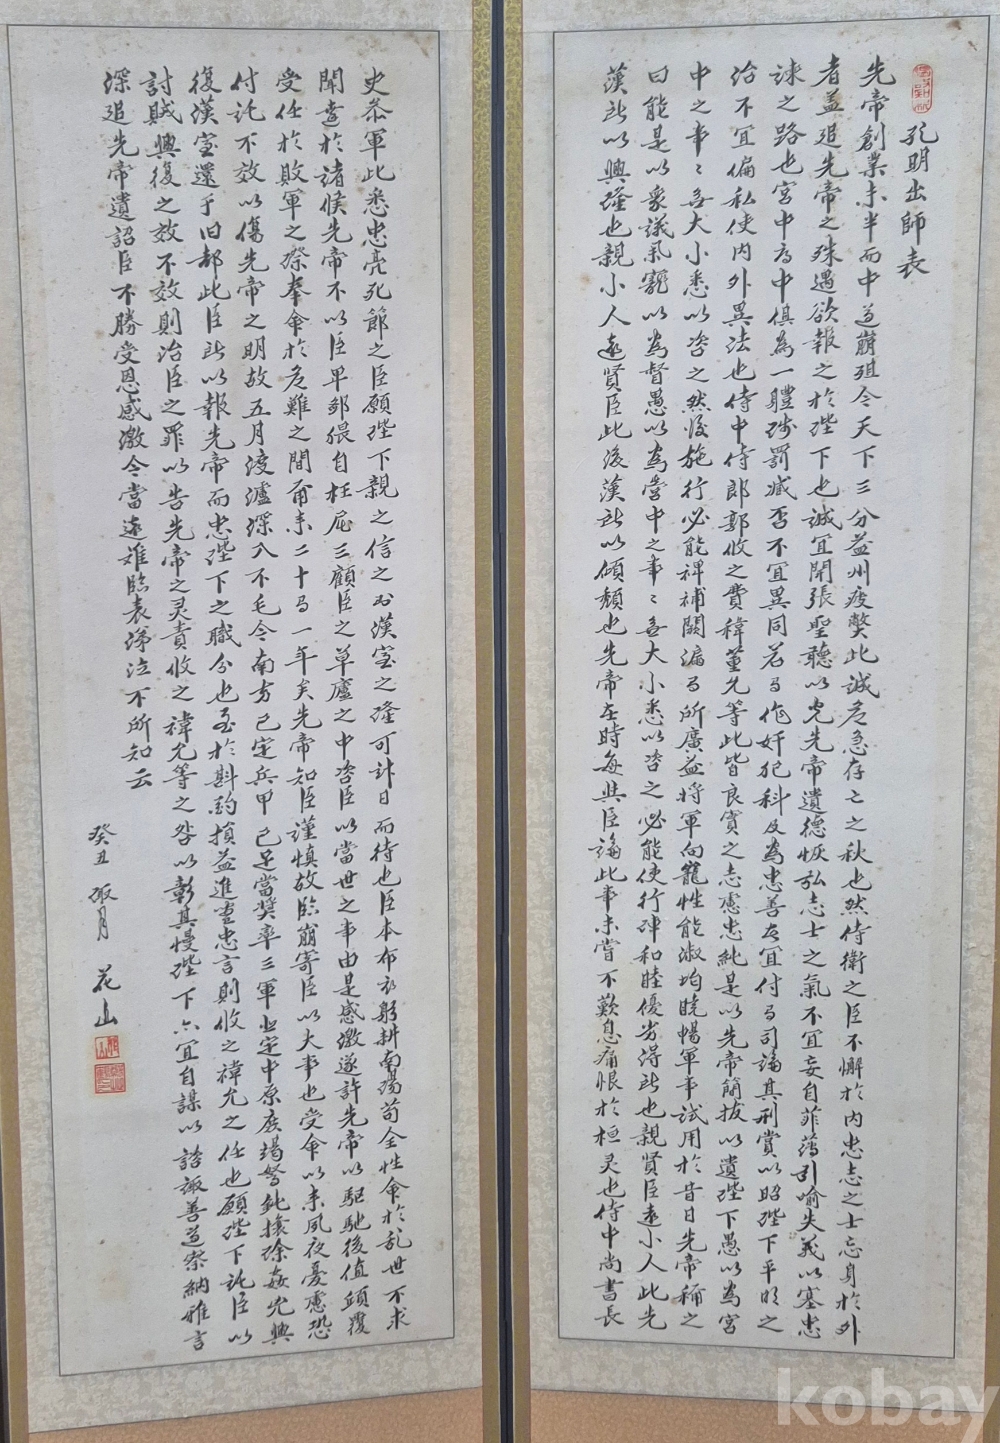 孔明出師表
先帝創業未半而中道崩殂今天下三分益州疲弊此誠危急存亡之秋也然侍衛之臣不懈於內忠志之士忘身於外
者蓋追先帝之殊遇欲報之於陛下也誠宜開張聖聽以光先帝遺德恢弘志士之氣不宜妄自菲薄引喻失義以塞忠
諫之路也宮中府中俱為一體陟罰臧否不宜異同若有作奸犯科及為忠善者宜付有司論其刑賞以昭陛下平明之
治不宜偏私使內外異法也侍中侍郎郭攸之費禕董允等此皆良實志慮忠純是以先帝簡拔以遺陛下愚以為宮
中之事〻無大小悉以咨之然後施行必能裨補闕漏有所廣益將軍向寵性能淑均曉暢軍事試用於昔日先帝稱之
曰能是以眾議舉寵以為督愚以為營中之事〻無大小悉以咨之必能使行陣和睦優劣得所也親賢臣遠小人此先
漢所以興隆也親小人遠賢臣此後漢所以傾頹也先帝在時每與臣論此事未嘗不歎息痛恨於桓灵也侍中尚書長
史參軍此悉忠亮死節之臣願陛下親之信之則漢室之隆可計日而待也臣本布衣躬耕南陽苟全性命於乱世不求
聞達於諸侯先帝不以臣卑鄙猥自枉屈三顧臣之草廬之中咨臣以當世之事由是感激遂許先帝以驅馳後值傾覆
受任於敗軍之際奉命於危難之間爾來二十有一年矣先帝知臣謹慎故臨崩寄臣以大事也受命以來夙夜憂慮恐
付託不效以傷先帝之明故五月渡瀘深入不毛今南方已定兵甲已足當獎率三軍北定中原庶竭駑鈍攘除姦兇興
復漢室還于旧都此臣所以報先帝而忠陛下之職分也至於斟酌損益進盡忠言則攸之禕允之任也願陛下託臣以
討賊興復之效不效則治臣之罪以告先帝之灵責攸之禕允等之咎以彰其慢陛下亦宜自謀以諮諏善道察納雅言
深追先帝遺詔臣不勝受恩感激今當遠離臨表涕泣不所知云
癸丑 花山
kobay